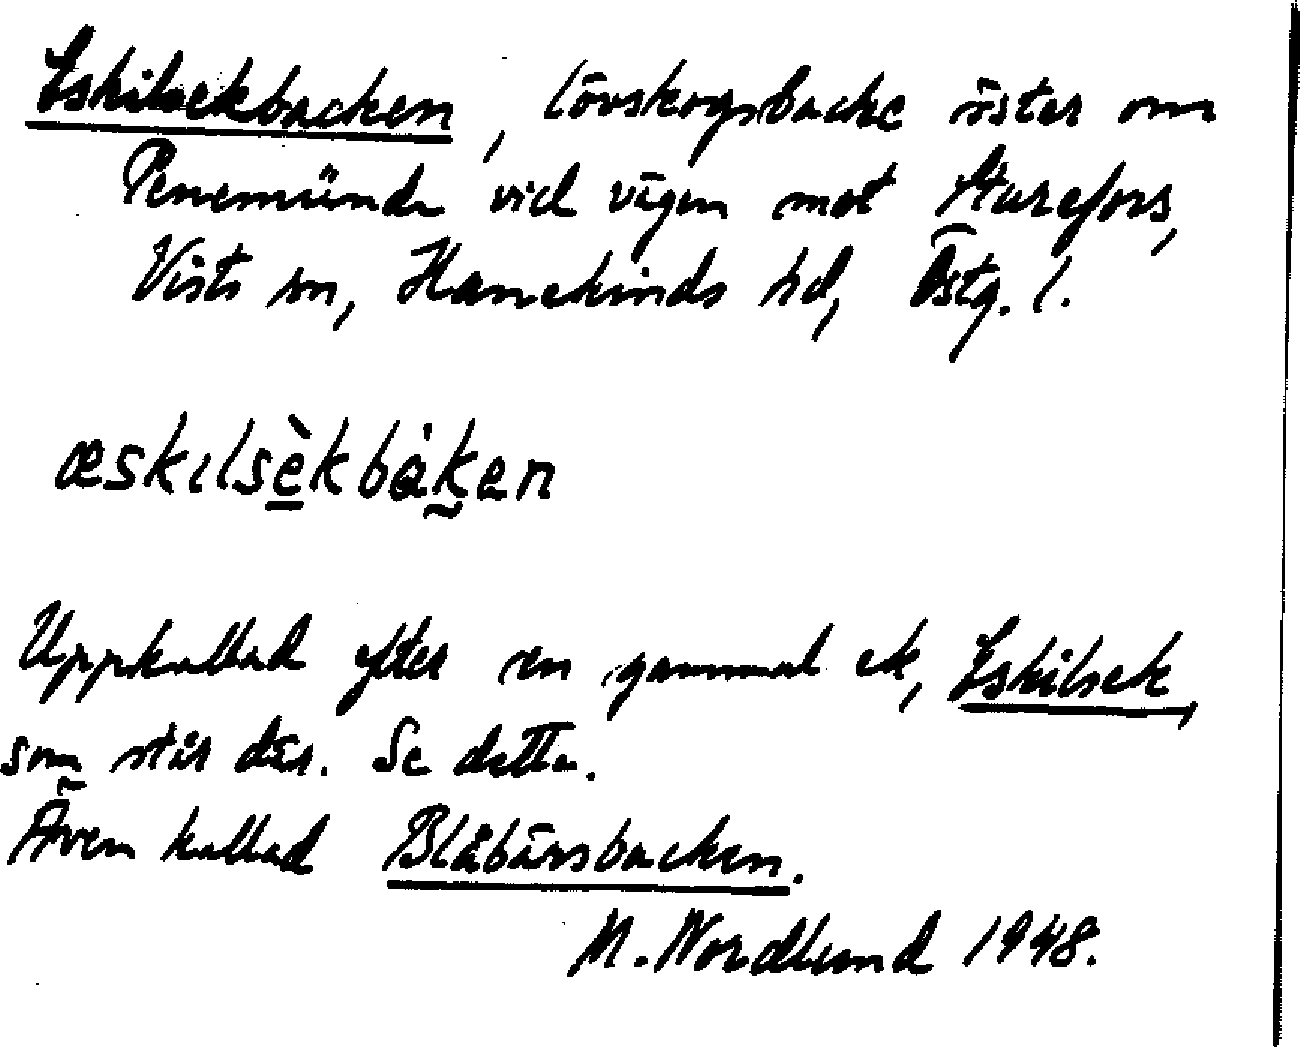 Eskilsekbacken, lövskogsbacke öster om
Penemünde vid vägen mot Sturefors,
Vists sn, Hanekinds hd, Östg. l.
æskılsèkbȧken
Uppkallad efter en gammal ek, Eskilsek,
som står där. Se detta.
Även kallad Blåbärsbacken.
M. Nordlund 1948.